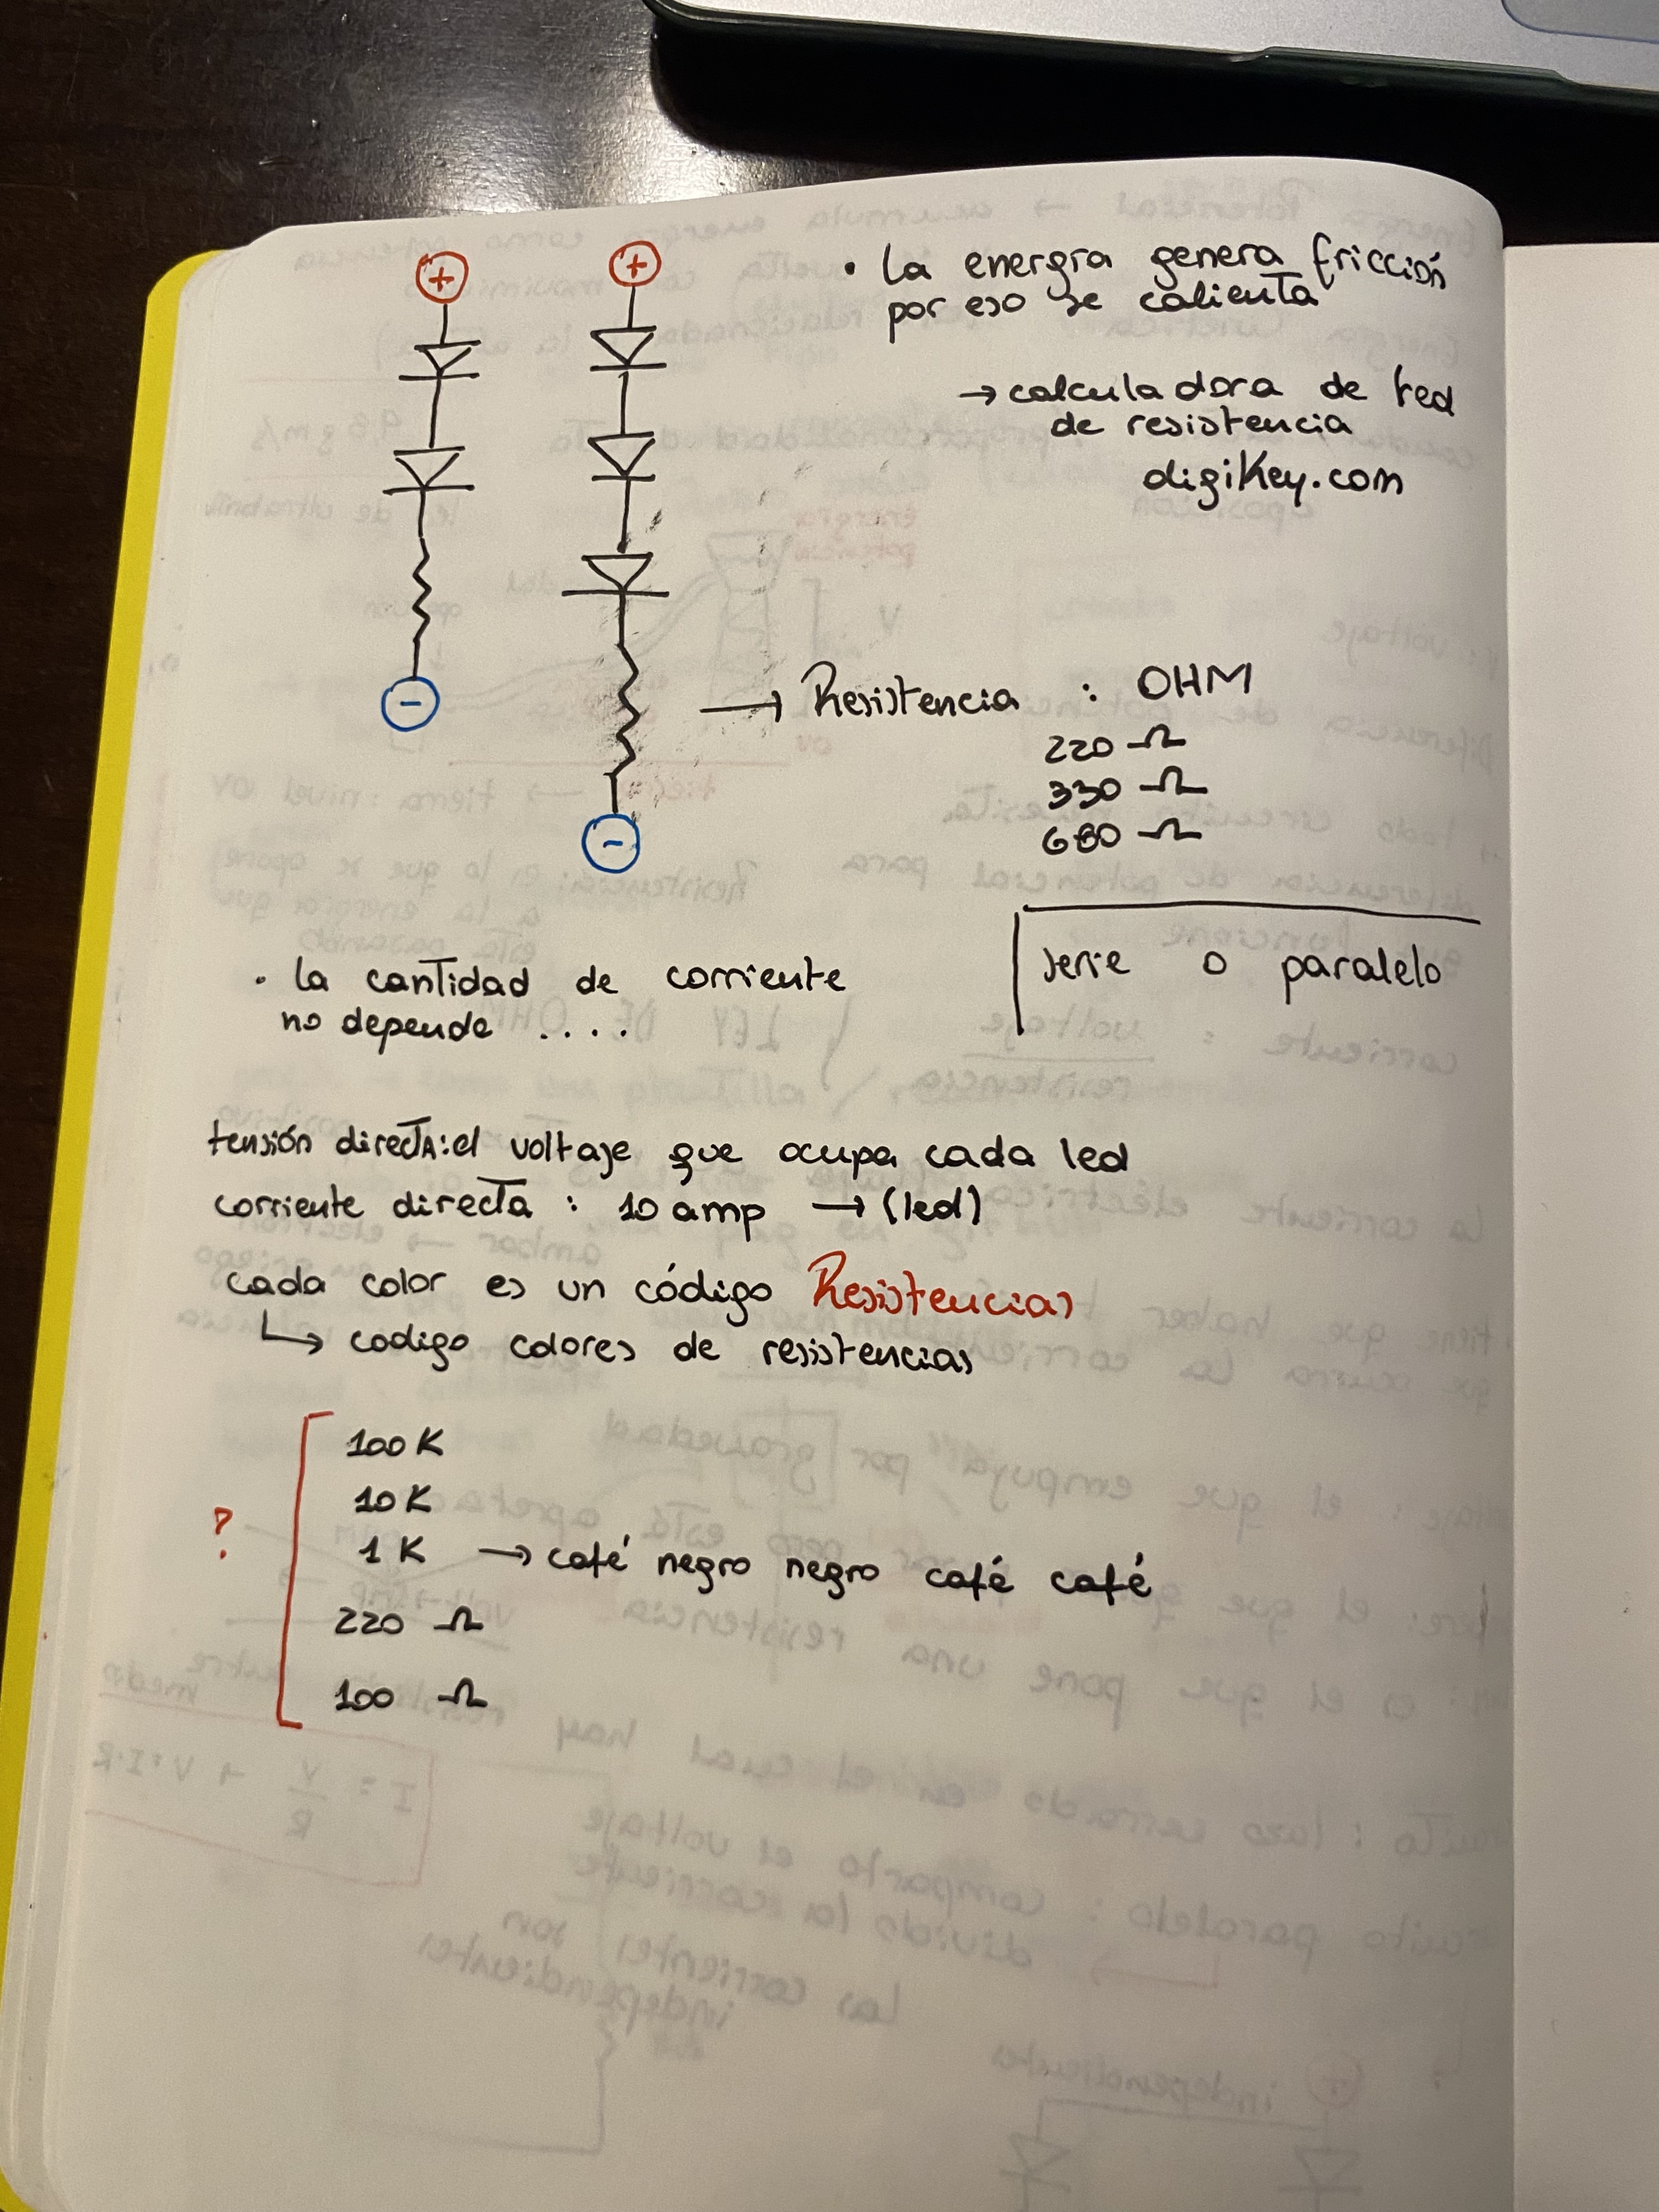 +
+
• La energía genera fricción
por eso se calienta
→ calculadora de led
de resistencia
digiKey.com
-
-
→ Resistencia : OHM
220 Ω
330 Ω
680 Ω
serie o paralelo
• La cantidad de corriente
no depende ....
tensión directa: el voltaje que ocupa cada led
corriente directa : 10 amp → (led)
cada color es un código Resistencias
↳ codigo colores de resistencias
?
100 K
10 K
1 K → café negro negro café café
220 Ω
100 Ω